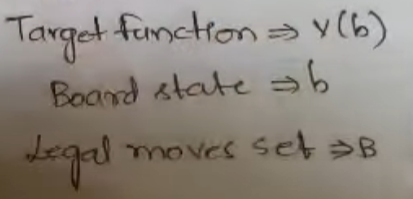 Target function ⇒ V(b)
Board state ⇒ b
Legal moves set ⇒ B